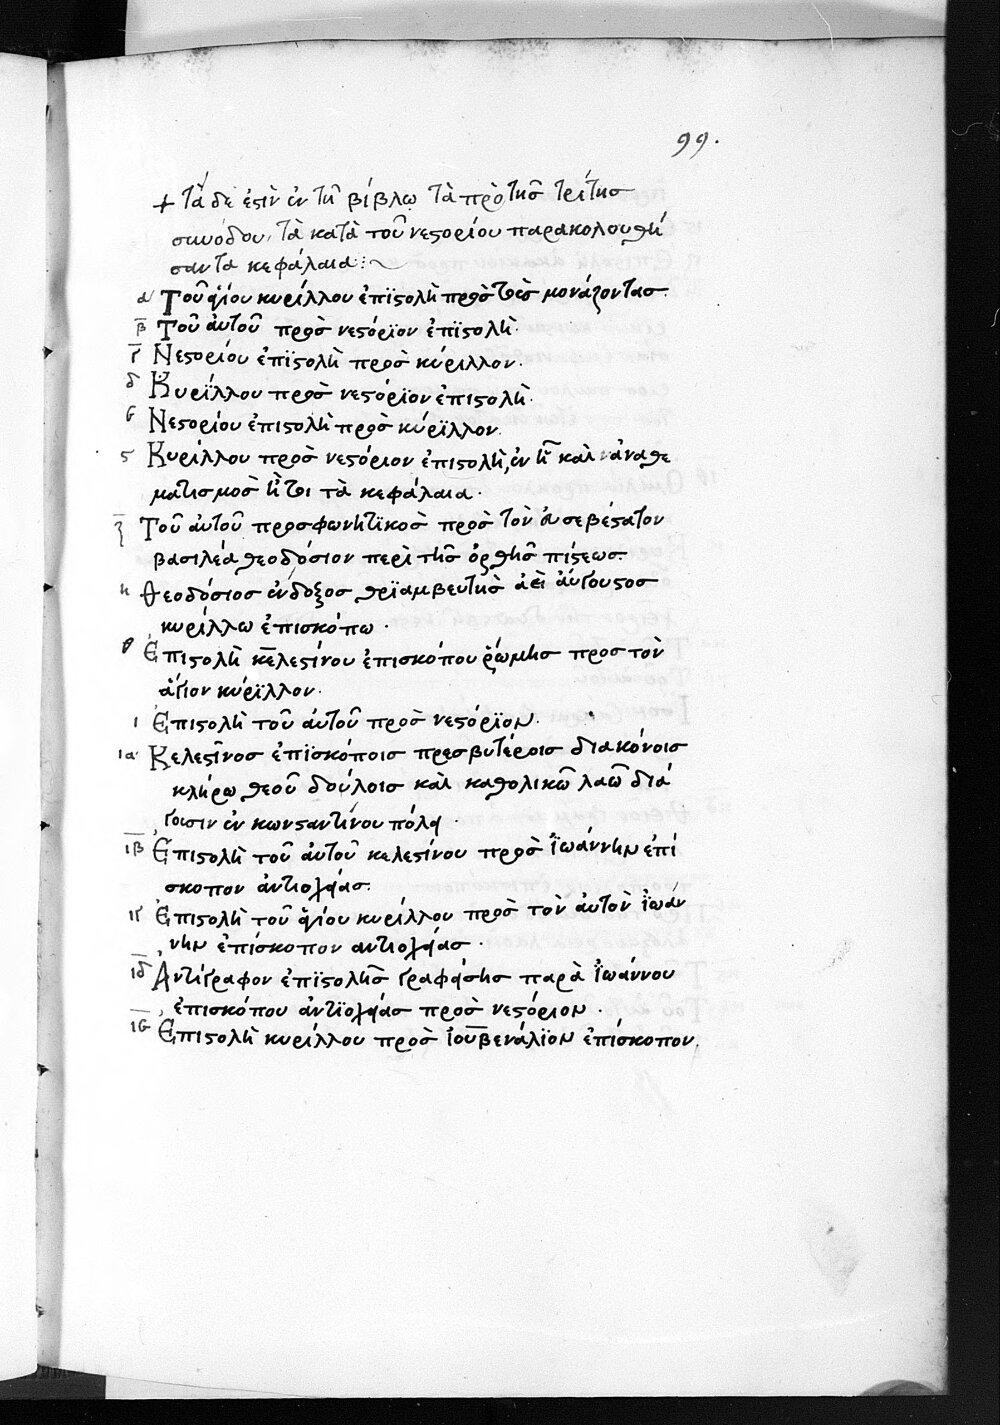 99.
+ τάδε ἐστὶν ἐν τῆ βίβλω τὰ πρὸ τῆς τρίτης
συνόδου, τὰ κατὰ τοῦ νεστορίου παρακολουθή
σαντα κεφάλαια :~
α Τοῦ ἁγίου κυρίλλου ἐπϊστολὴ πρὸς τοὺς μονάζοντας.
β Τοῦ αὐτοῦ πρὸς νεστόρϊον ἐπϊστολὴ.
γ Νεστορίου ἐπϊστολὴ πρὸς κύριλλον.
δ Κυρϊλλου πρὸς νεστόρϊον ἐπιστολὴ.
ε Νεστορίου ἐπιστολὴ πρὸς κύρϊλλον.
ς Κυρίλλου πρὸς νεστόριον ἐπιστολὴ, ἐν ἧ καὶ ἀναθε
ματισμὸς ἤτοι τὰ κεφάλαια.
ζ Τοῦ αὐτοῦ προσφωνητϊκὸς πρὸς τὸν εὐσεβέστατον
βασιλέα θεοδόσιον περὶ τῆς ὀρθῆς πίστεως.
η Θεοδόσιος ἔνδοξος θρϊαμβευτὴς ἀεὶ ἀύγουστος
κυρίλλω ἐπισκόπω.
θ Ἐπιστολὴ κελεστίνου ἐπισκόπου ῥώμης προς τὸν
ἅγιον κύρϊλλον.
ι Ἐπιστολὴ τοῦ ἀυτοῦ πρὸς νεστόρϊον.
ια Κελεστῖνος ἐπϊσκόποις πρεσβυτέροις διακόνοις
κλήρω θεοῦ δούλοις καὶ καθολικῶ λαῶ διά
γουσιν ἐν κωνσταντίνου πόλει.
ιβ Ἐπιστολὴ τοῦ ἀυτοῦ κελεστίνου πρὸς Ἰωάννην ἐπί
σκοπον ἀντιοχείας.
ιγ Ἐπιστολὴ τοῦ ἁγίου κυρίλλου πρὸς τὸν ἀυτὸν ἰωάν
νην ἐπίσκοπον αντιοχείας.
ιδ Ἀντίγραφον ἐπϊστολῆς γραφείσης παρὰ Ἰωάννου
ἐπισκόπου ἀντϊοχείας πρὸς νεστόριον.
ιε Ἐπιστολὴ κυρίλλου πρὸς Ἰουβενάλϊον ἐπίσκοπον.